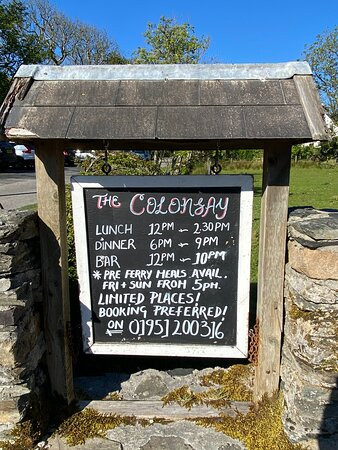 THE COLONSAY
LUNCH 12PM ~ 2.30PM
DINNER 6PM ~ 9PM
BAR 12PM ~ 10PM
* PRE FERRY MEALS AVAIL.
FRI + SUN FROM 5PM.
LIMITED PLACES!
BOOKING PREFERRED!
ON 01951 200316